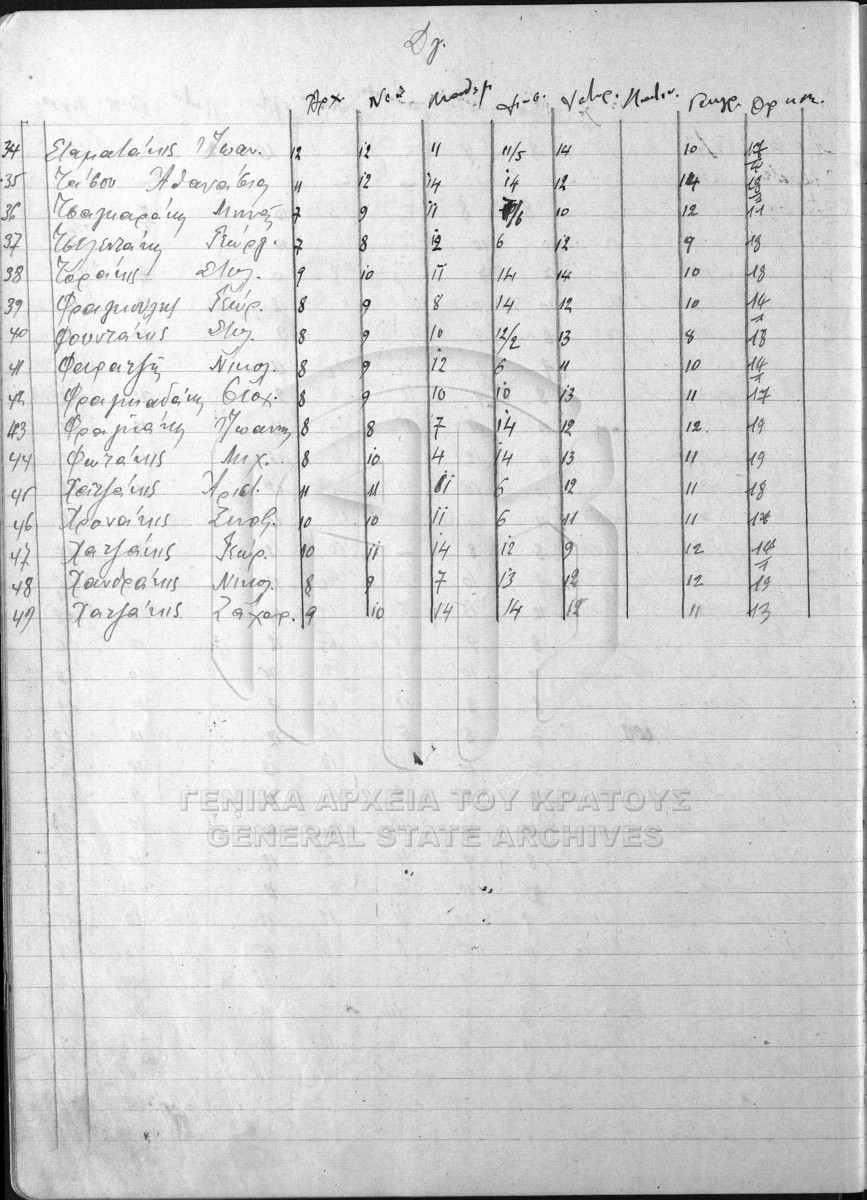 Δγ.
Ἀρχ. Νέα Μαθημ Ἱστρ. Λατιν. Γεωγρ. Θρησκ.
34 Σταματάκης Ἰωαν. 12 12 11 11/5 14 10 17
35 Ἀθανάσιος 11 12 14 14 12 14
36 Τσαγκαράκη 7 9 11 10 12 11
37 Τσελεντάκη Γεώργ. 7 8 12 6 12 9 18
38 Στυλ. 9 10 11 14 14 10 18
39 Γεώρ. 8 9 8 14 12 10 14
40 Φουντάκης Στυλ. 8 9 10 12/2 13 8 18
41 Νικολ. 8 9 12 6 11 10 14
42 Φραγκιαδάκη 8 9 10 10 13 11 17
43 Φραγκάκη Ἰωάννης 8 8 7 14 12 12. 19
44 Φωτάκης Μιχ. 8 10 4 14 13 11 19
45 Χατζάκης Ἀριστ. 11 11 11 6 12 11 18
46 Χρονάκης 10 10 11 6 11 11
47 Χατζάκης Γεωρ. 10 11 14 12 9 12
48 Χανδράκης Νικολ. 8 9 7 13 12 12 19
49 Χατζάκης Ζαχαρ. 9 10 14 14 12 11 13
ΓΕΝΙΚΑ ΑΡΧΕΙΑ ΤΟΥ ΚΡΑΤΟΥΣ
GENERAL STATE ARCHIVES